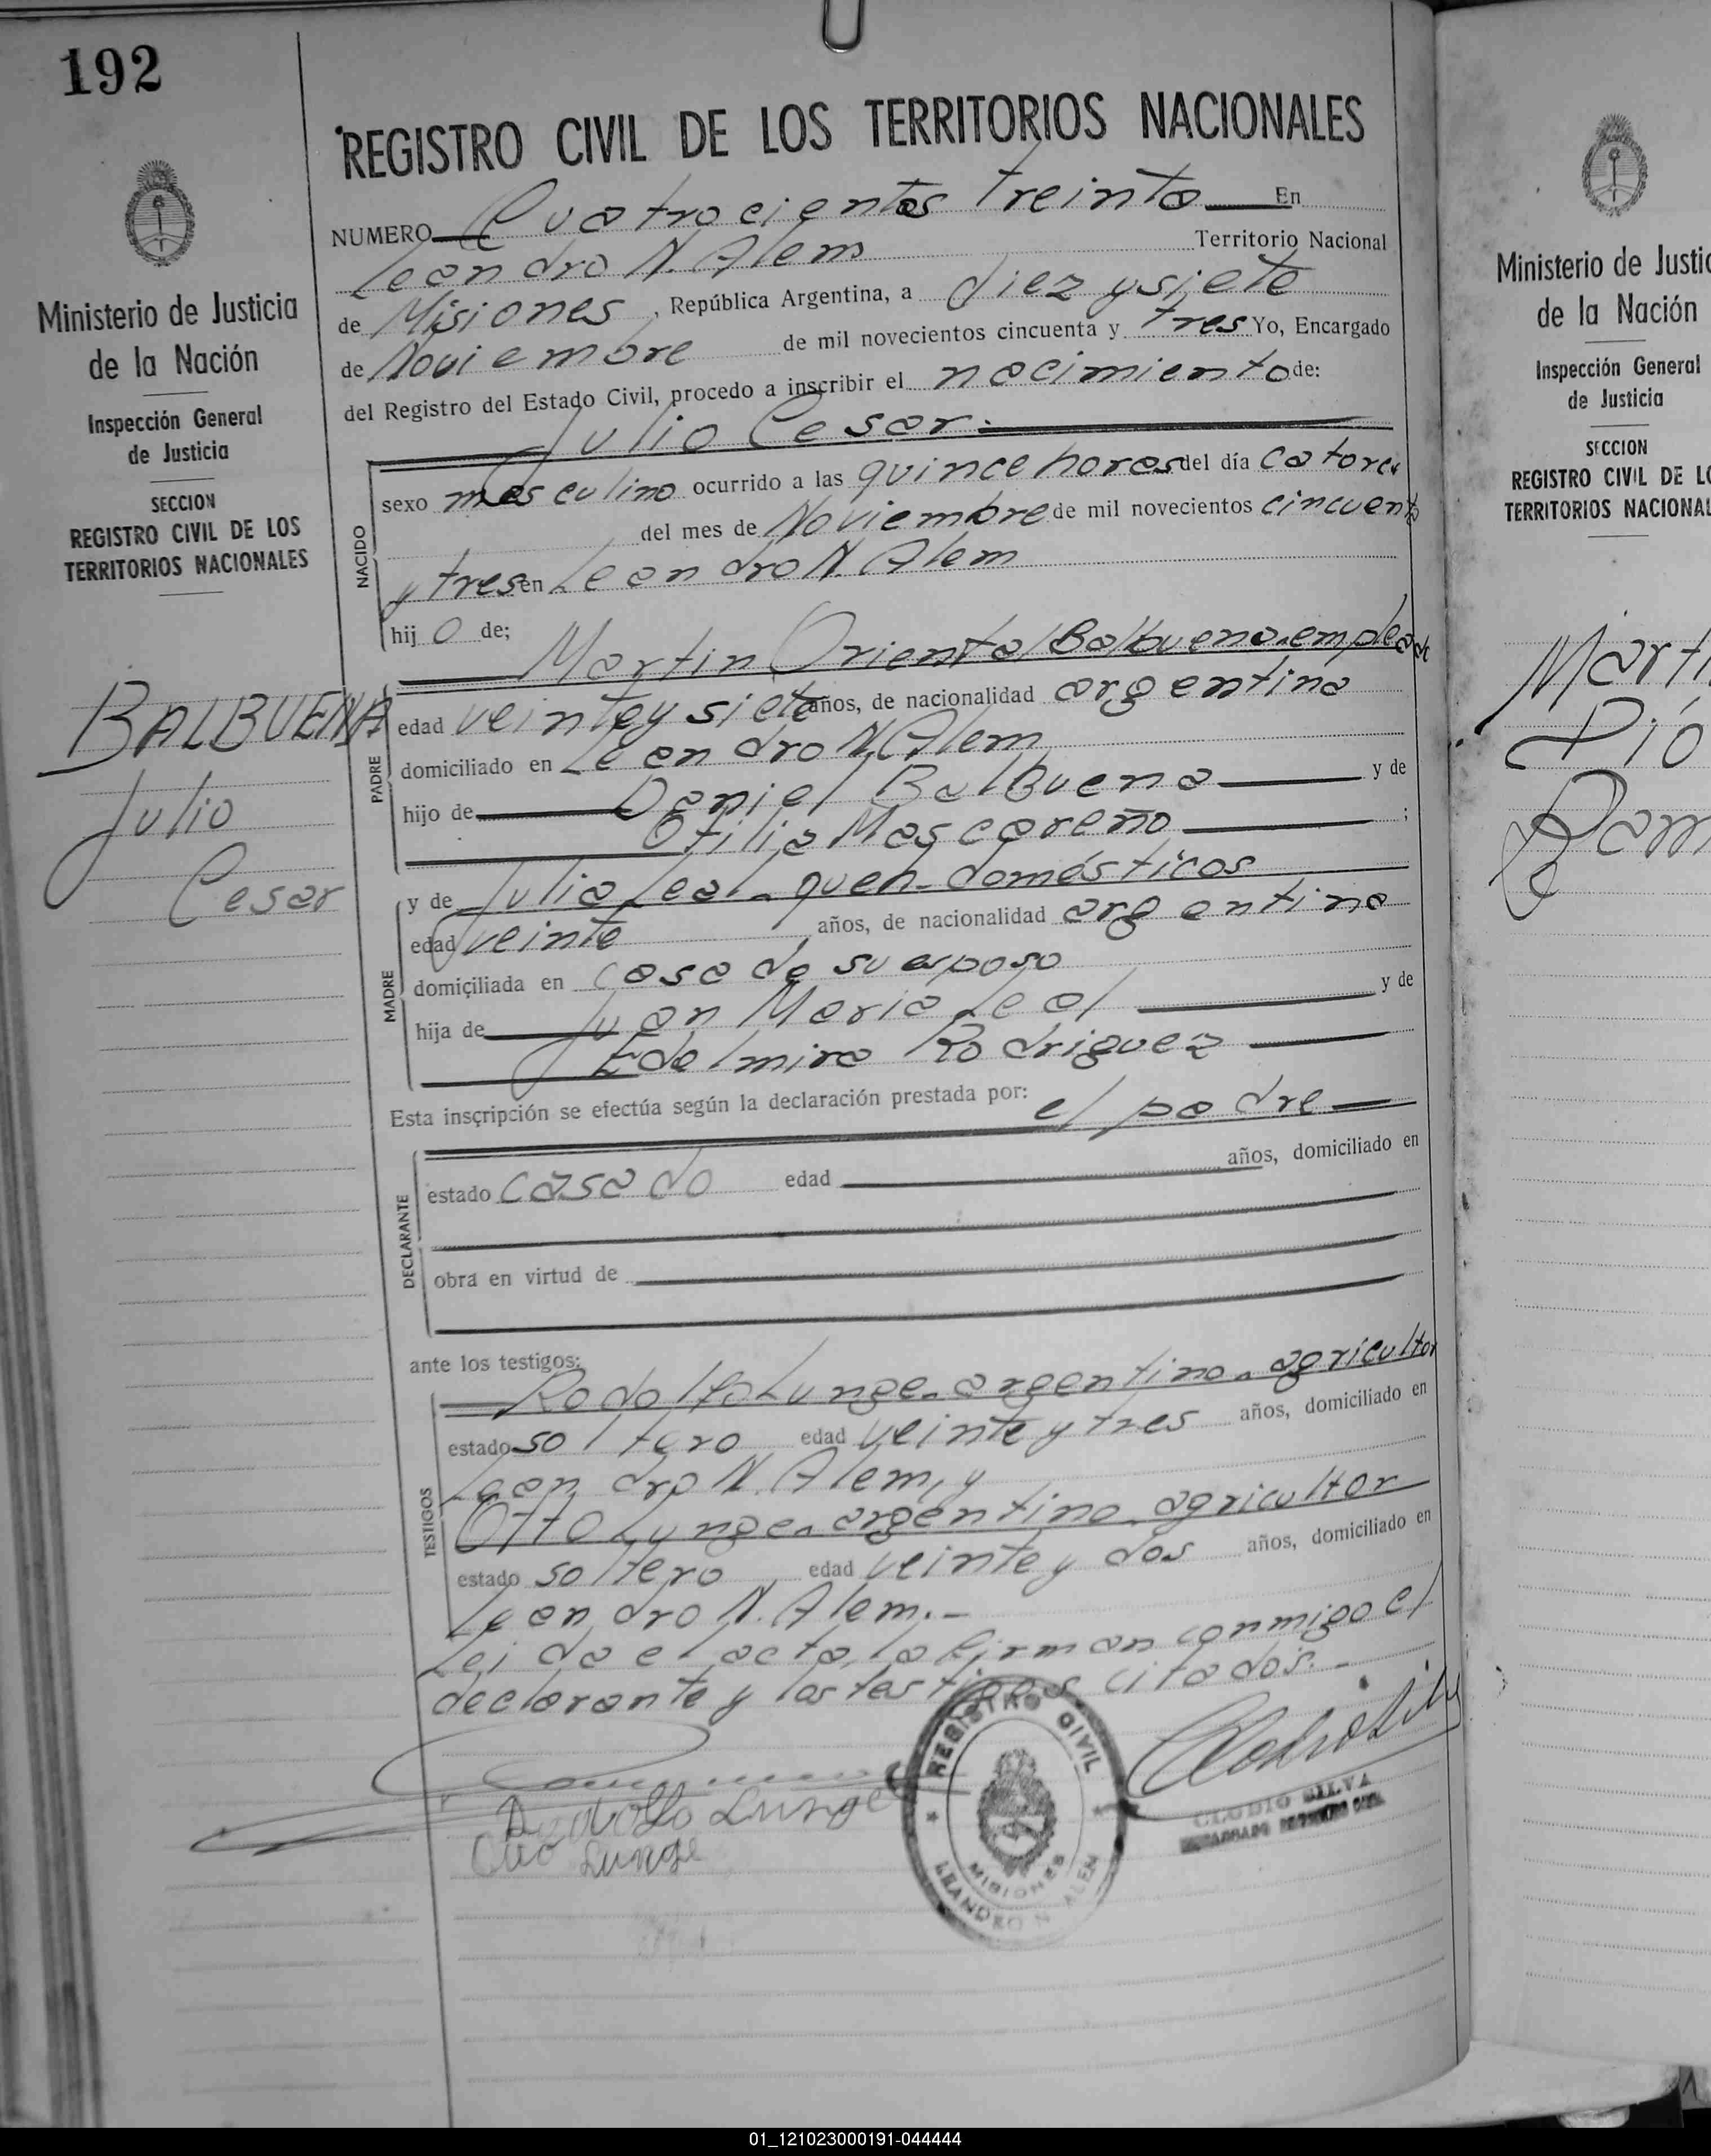 192
REGISTRO CIVIL DE LOS TERRITORIOS NACIONALES
Ministerio de Justicia
de la Nación
Inspección General
de Justicia
SECCION
REGISTRO CIVIL DE LOS
TERRITORIOS NACIONALES
BALBUENA
Julio
Cesar
NUMERO Cuatrocientos treinta En
Leandro N. Alem Territorio Nacional
de Misiones, República Argentina, a diez y siete
de Noviembre de mil novecientos cincuenta y tres Yo, Encargado
del Registro del Estado Civil, procedo a inscribir el nacimiento de:
Julio Cesar.
NACIDO
sexo masculino ocurrido a las quince horas del día catorce
del mes de Noviembre de mil novecientos cincuenta
y tres en Leandro N. Alem
hijo de;
Martin Oriental Balbuena. empleado
PADRE
edad veinte y siete años, de nacionalidad argentina
domiciliado en Leandro N. Alem
hijo de Daniel Balbuena y de
Otilia Mascareño ;
MADRE
y de Julia Leal. queh-domésticos
edad veinte, años, de nacionalidad argentina
domiciliada en casa de su esposo
hija de Juan Maria Leal y de
Edelmira Rodriguez
Esta inscripción se efectúa según la declaración prestada por: el padre
DECLARANTE
estado casado edad años, domiciliado en
obra en virtud de
ante los testigos:
TESTIGOS
Rodolfo Lunge. argentino. agricultor
estado soltero edad veinte y tres años, domiciliado en
Leandro N. Alem, y
Otto Lunge. argentino. agricultor
estado soltero edad veinte y dos años, domiciliado en
Leandro N. Alem.-
Leida el acta, la firman conmigo el
declarante y los testigos citados.-
Rodolfo Lunge
Otto Lunge
REGISTRO CIVIL
MISIONES
LEANDRO N. ALEN
CLODIO SILVA
ENCARGADO REGISTRO CIVIL
Ministerio de Justic
de la Nación
Inspección General
de Justicia
SECCION
REGISTRO CIVIL DE LO
TERRITORIOS NACIONAL
Marti
Pío
Ram
01_121023000191-044444